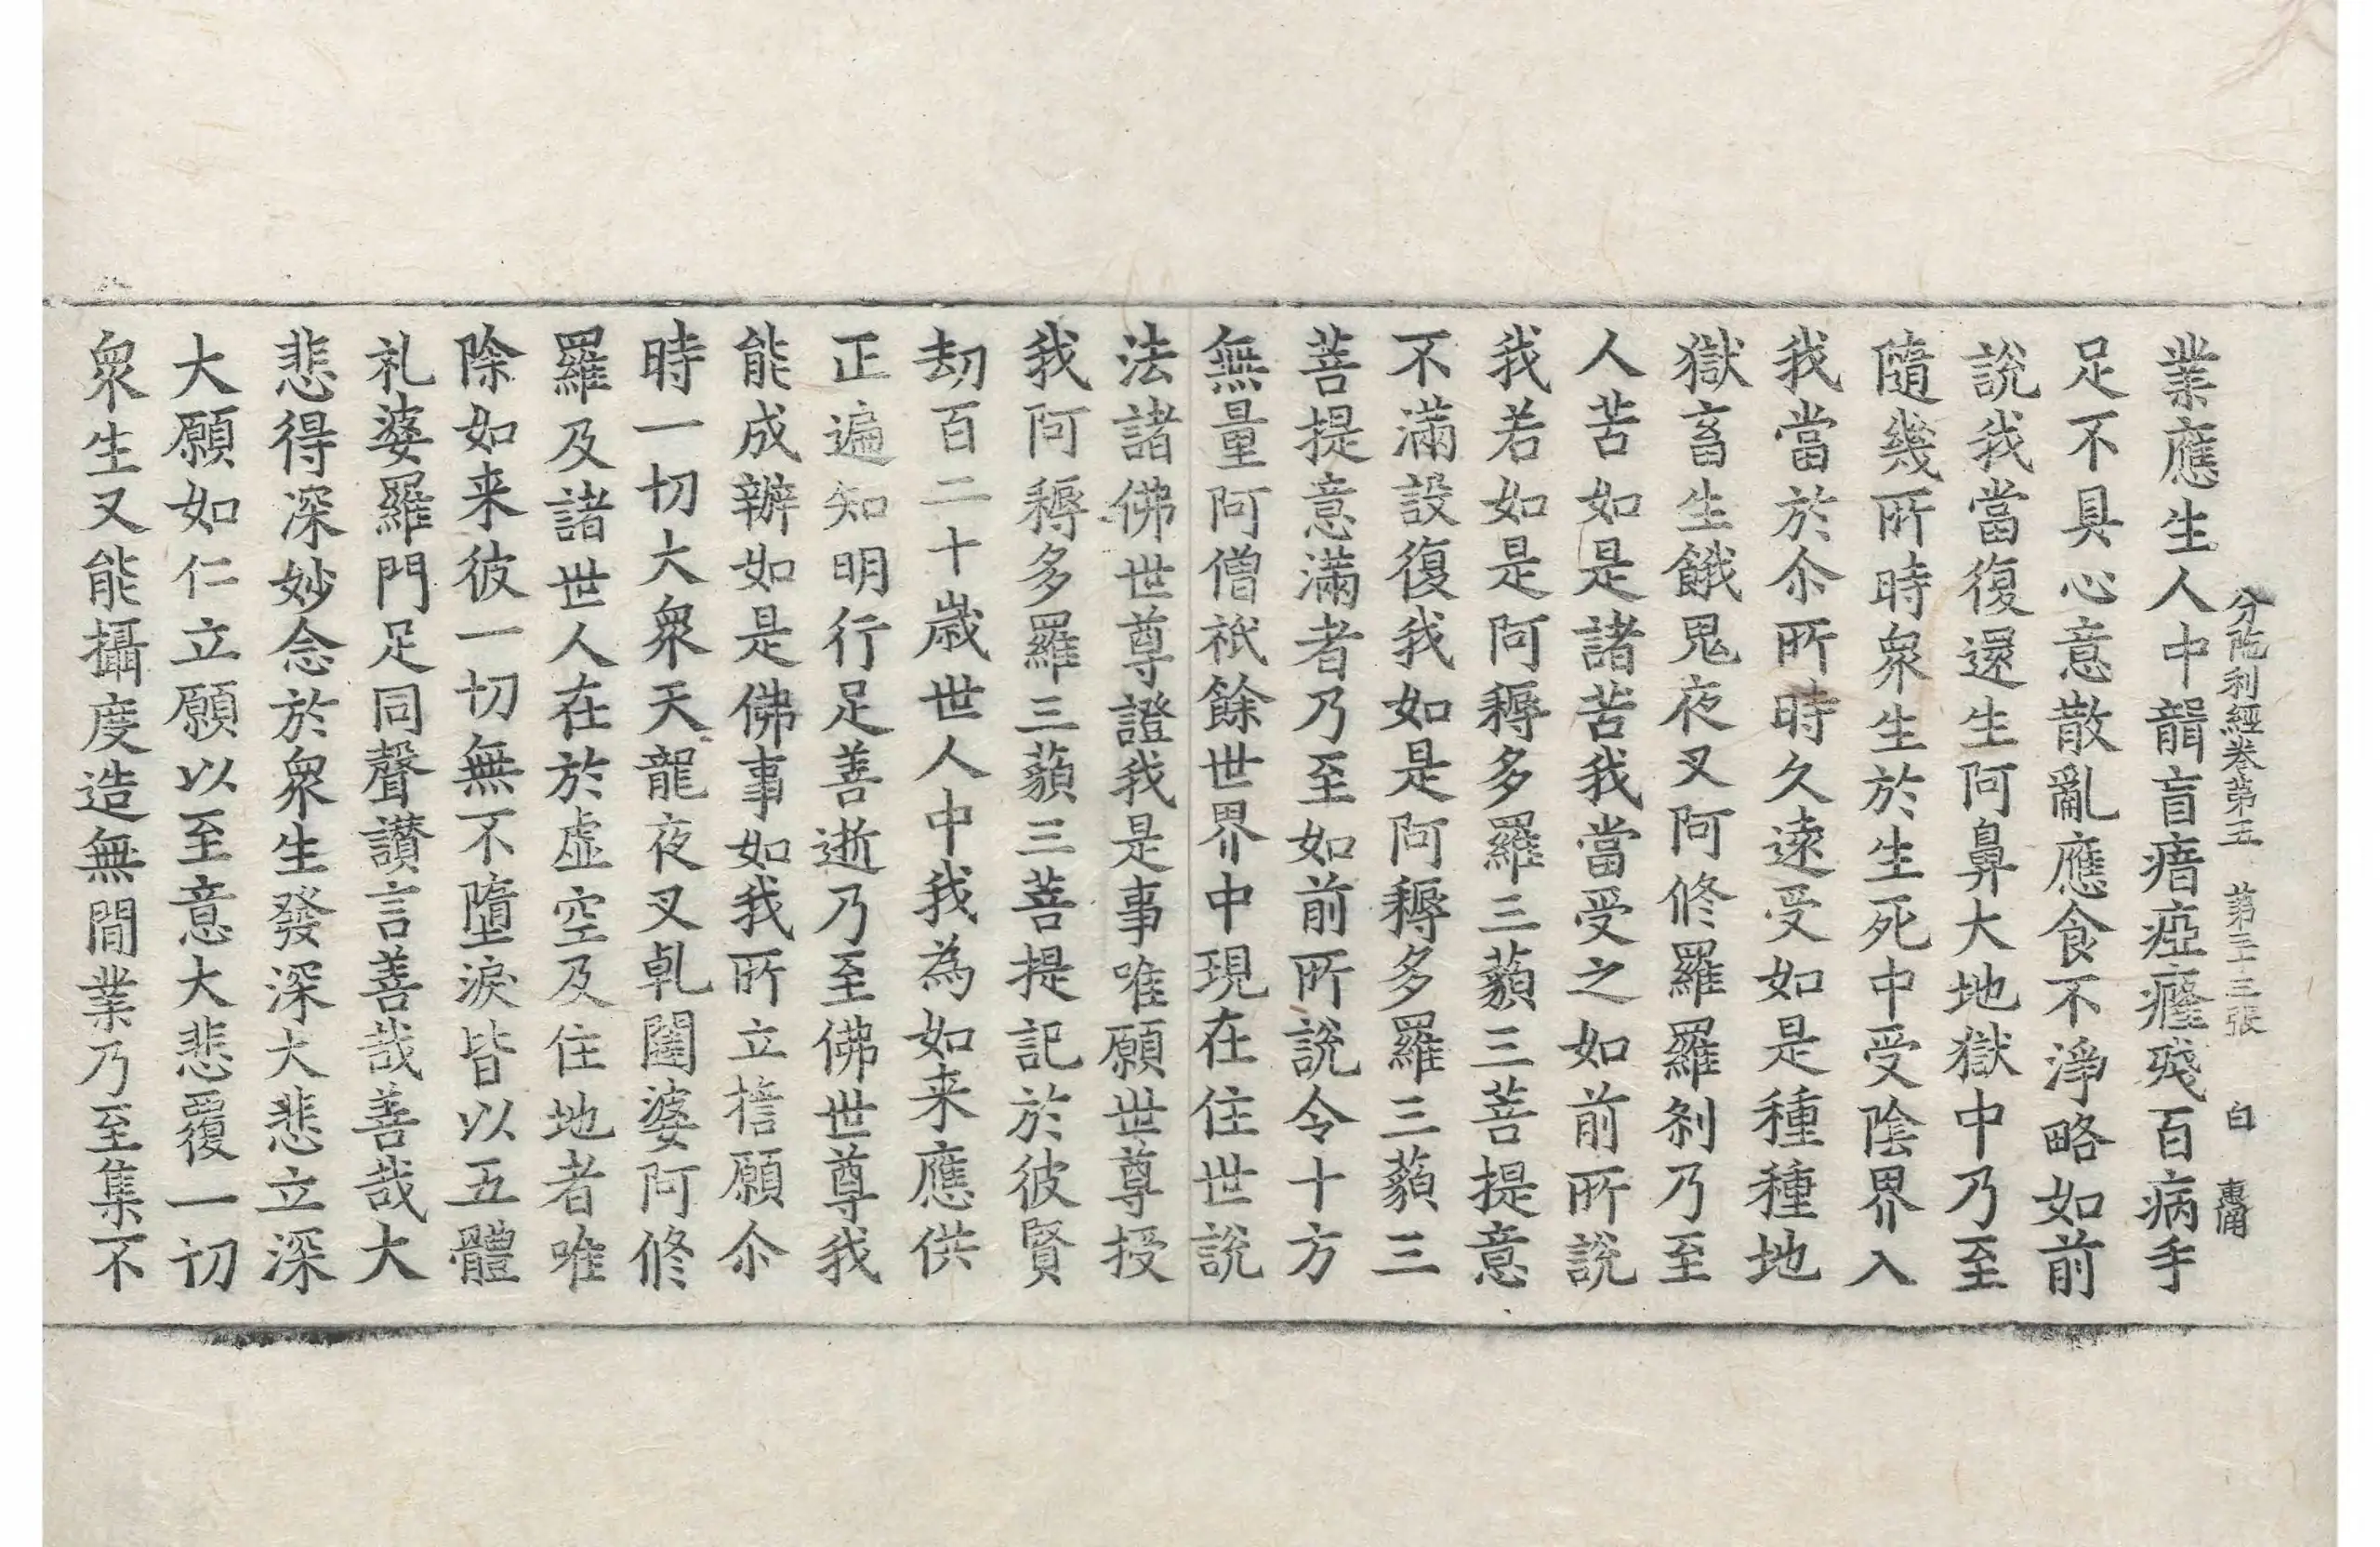 業應生人中聾盲瘖瘂癃殘百病手
分陁利經卷第五 第三十三張 白 惠甫
足不具心意散亂應食不淨略如前
說我當復還生阿鼻大地獄中乃至
隨幾所時衆生於生死中受陰界入
我當於尒所時久遠受如是種種地
獄畜生餓鬼夜叉阿修羅羅刹乃至
人苦如是諸苦我當受之如前所說
我若如是阿耨多羅三藐三菩提意
不滿設復我如是阿耨多羅三藐三
菩提意滿者乃至如前所說令十方
無量阿僧祇餘世界中現在住世說
法諸佛世尊證我是事唯願世尊授
我阿耨多羅三藐三菩提記於彼賢
劫百二十歲世人中我為如来應供
正遍知明行足善逝乃至佛世尊我
能成辦如是佛事如我所立擔願尒
時一切大衆天龍夜叉乹闥婆阿修
羅及諸世人在於虛空及住地者唯
除如来彼一切無不墮淚皆以五體
礼婆羅門足同聲讃言善哉善哉大
悲得深妙念於衆生發深大悲立深
大願如仁立願以至意大悲覆一切
衆生又能攝度造無間業乃至集不